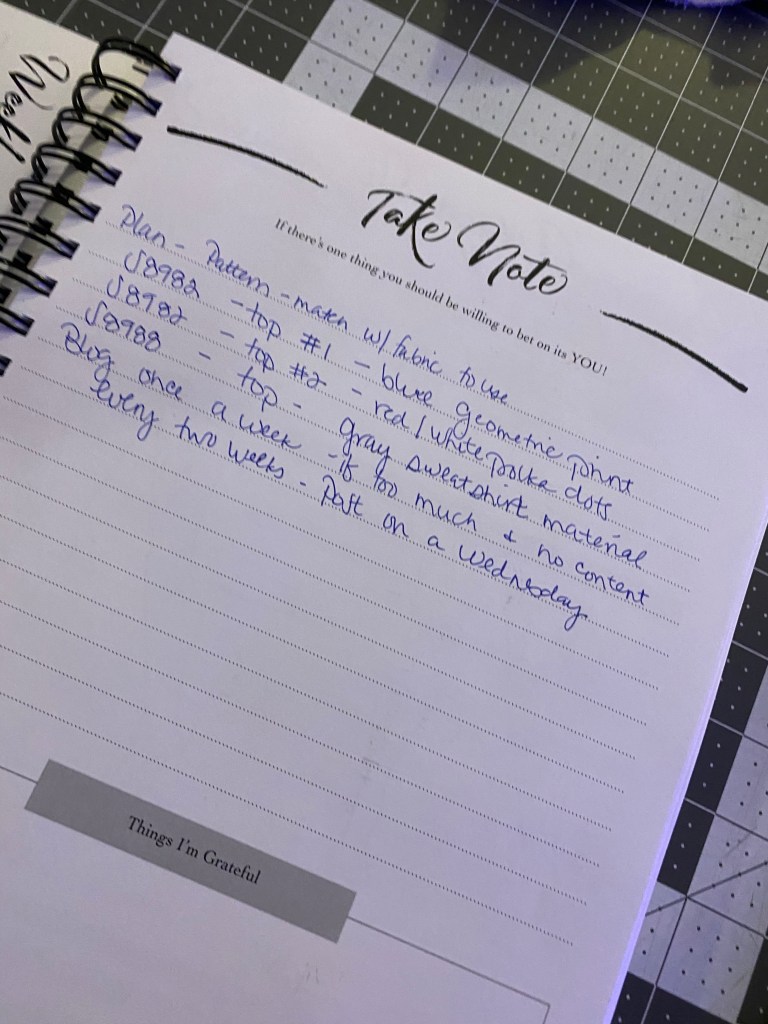 Week!
Take Note
If there's one thing you should be willing to bet on its YOU!
Plan - Pattern - match w/ fabric to use
S8982 - top #1 - blue geometric print
S8982 - top #2 - red/white polka dots
S8988 - top - gray sweatshirt material
Blog once a week - if too much + no content
every two weeks - Post on a Wednesday
Things I'm Grateful